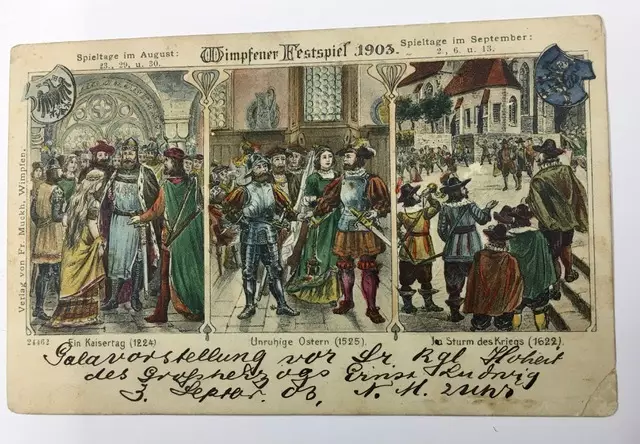 Spieltage im August:
23., 29., u. 30.
Wimpfener Festspiel 1903.
Spieltage im September:
2., 6. u. 13.
Verlag von Fr. Muckh, Wimpfen.
24462
Ein Kaisertag (1224)
Unruhige Ostern (1525)
Im Sturm des Kriegs (1622).
Galavorstellung vor Sr. Kgl. Hoheit
des Großherzogs Ernst Ludwig
3. Septbr. 03, N. M. 2 Uhr